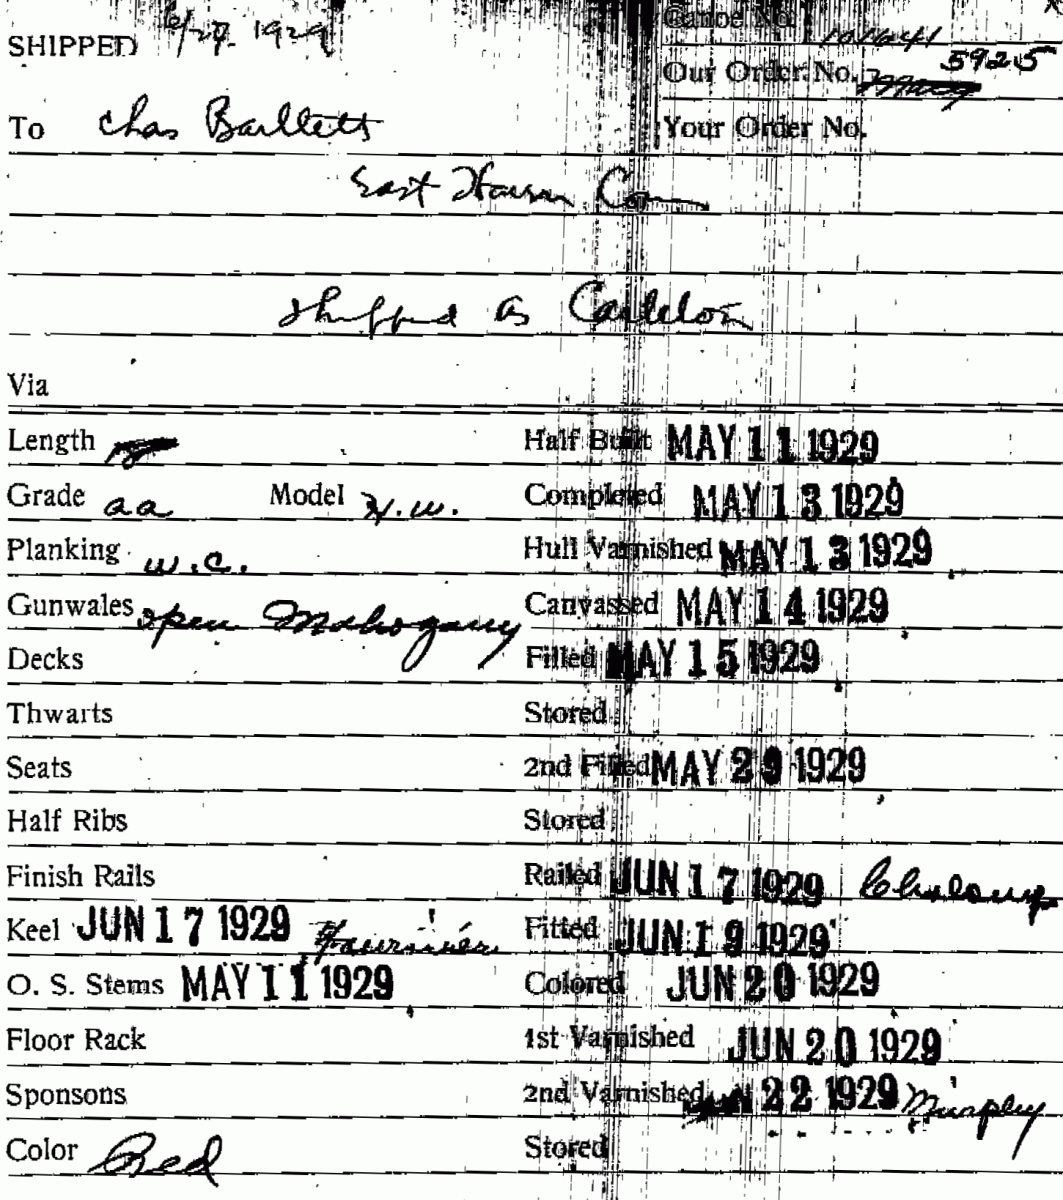 SHIPPED 6/27. 1929 Canoe No. 101641
Our Order No. 5925
To Chas Bartlett Your Order No.
East Haven Conn
Shipped as Carleton
Via
Length Half Built MAY 11 1929
Grade aa Model H.W. Completed MAY 13 1929
Planking w.c. Hull Varnished MAY 13 1929
Gunwales open Mahogany Canvassed MAY 14 1929
Decks Filled MAY 15 1929
Thwarts Stored
Seats 2nd Filled MAY 29 1929
Half Ribs Stored
Finish Rails Railed JUN 17 1929
Keel JUN 17 1929 Fournier Fitted JUN 19 1929
O. S. Stems MAY 11 1929 Colored JUN 20 1929
Floor Rack 1st Varnished JUN 20 1929
Sponsons 2nd Varnished 22 1929 Murphy
Color Red Stored